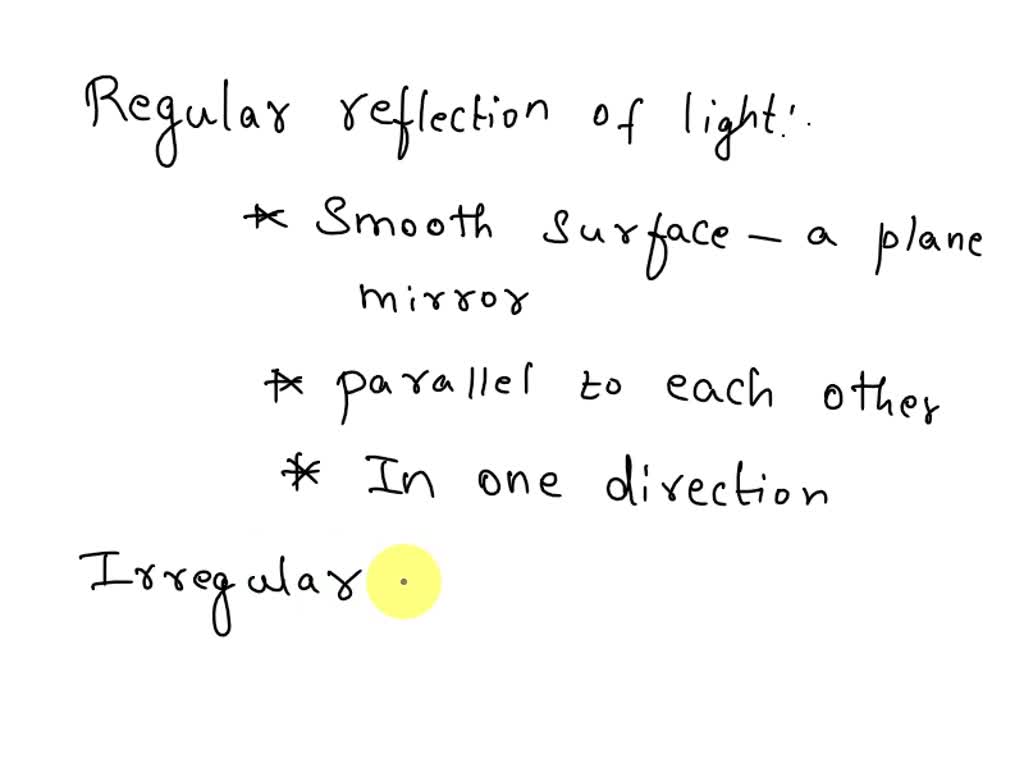 Regular reflection of light:.
* Smooth surface - a plane
mirror
* parallel to each other
* In one direction
Irregular